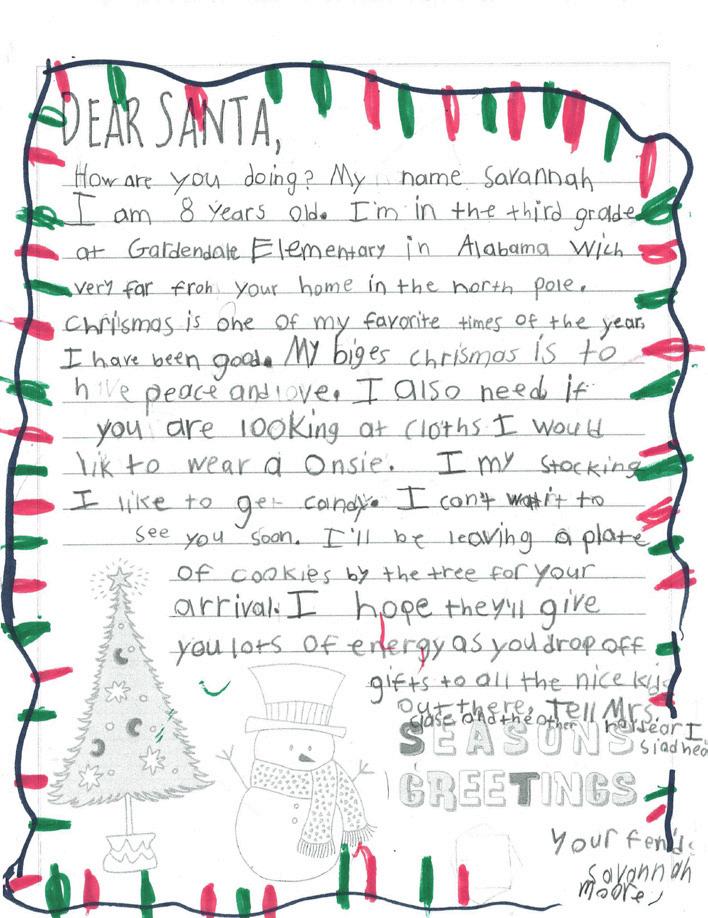 DEAR SANTA,
How are you doing? My name Savannah
I am 8 years old. I'm in the third grade
at Gardendale Elementary in Alabama wich
very far froh your home in the north pole.
Chrismas is one of my favorite times of the year.
I have been good. My biges chrismas is to
have peace and love. I also need if
you are looking at cloths I would
lik to wear a Onsie. I my stocking
I like to get candy. I can't wait to
see you soon. I'll be leaving a plate
of cookies by the tree for your
arrival. I hope they'll give
you lots of energy as you drop off
gifts to all the nice kids
out there. Tell Mrs.
clase and the other
SEASONS
GREETINGS
Your fends
Savannah
Moore